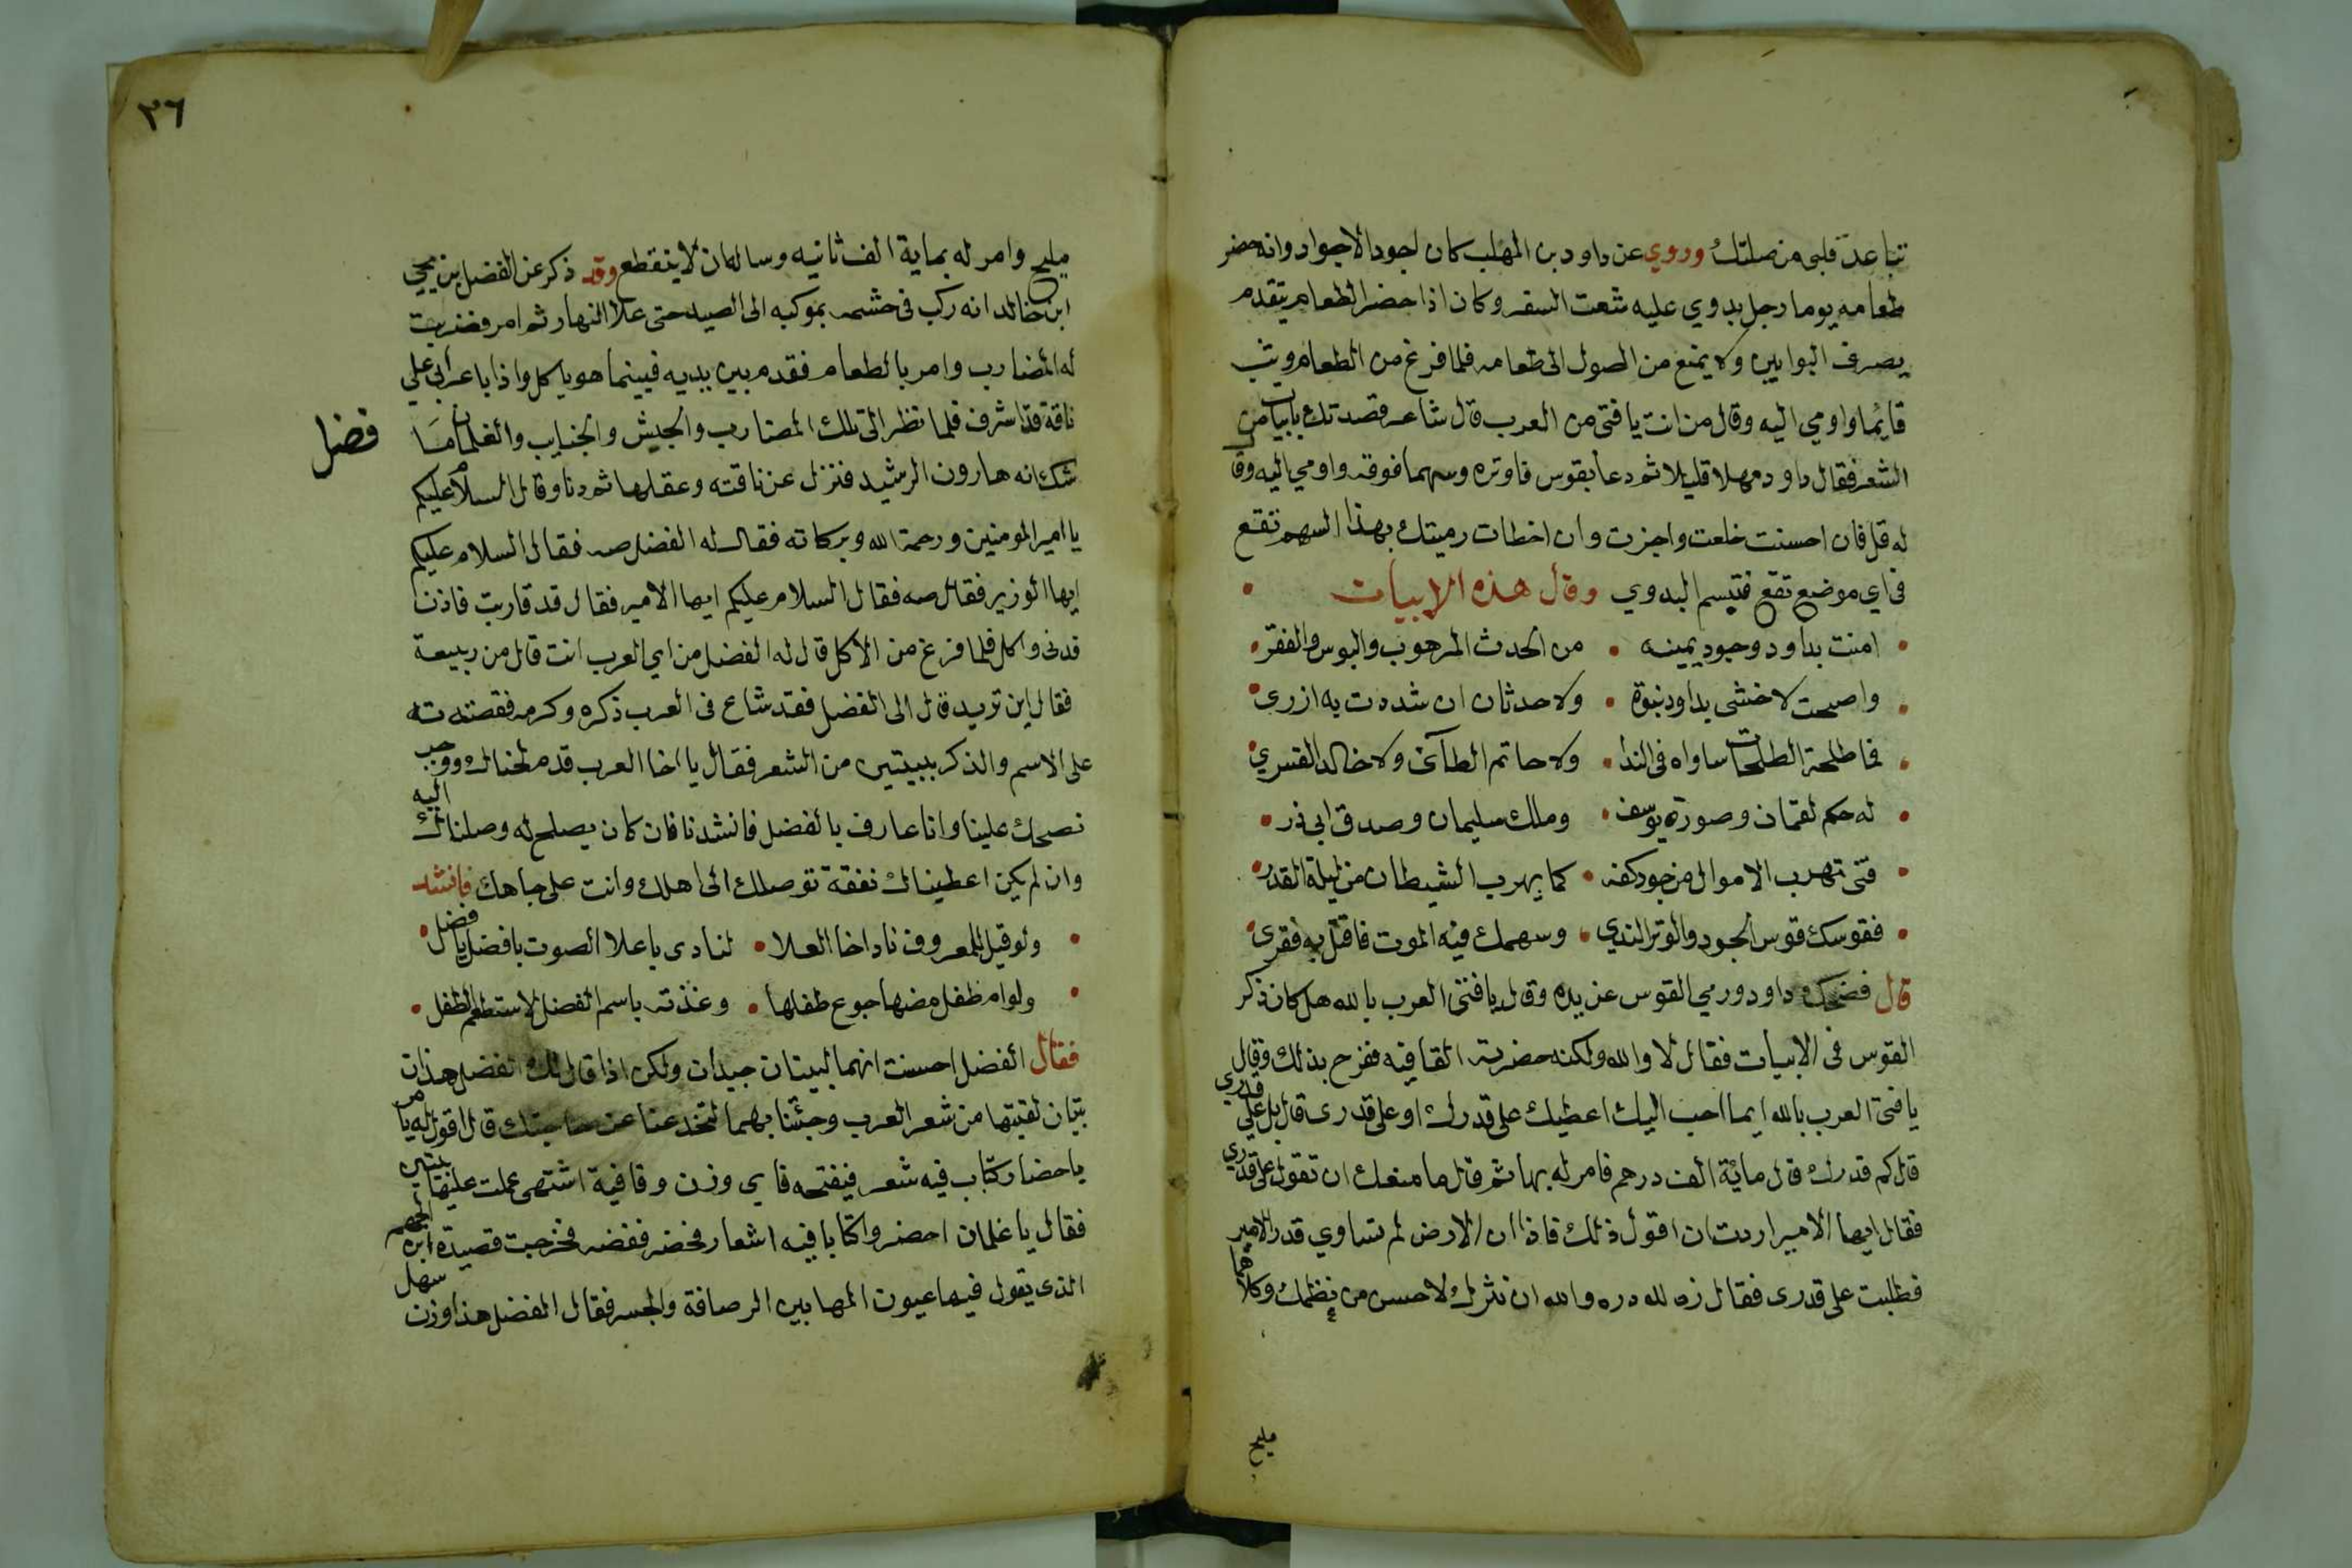 تباعد قلبى من صلتك وروي عن داود بن المهلب كان اجود الاجواد وانه حضر
طعامه يوما رجل بدوي عليه شعت السفر وكان اذا حضر الطعام يتقدم
يصرف البوابين ولا يمنع من الصول الى طعامه فلما فرغ من الطعام وثب
قايما واومي اليه وقال من انت يا فتى من العرب قال شاعر قصدتك بابيات من
الشعر فقال داود مهلا قليلا ثم دعا بقوس فاوتره وسهما فوقه واومي اليه وقا
له قل فان احسنت خلعت واجزت وان اخطات رميتك بهذا السهم تقع
فى اي موضع تقع فتبسم البدوي وقال هذه الابيات
امنت بداود وجود يمينه • من الحدث المرهوب والبوس والفقر
واصبحت لا خشى بداود نبوة • ولا حدثان ان شددت به ازرى
فما طلحة الطلحات ساواه فى الندا • ولا حاتم الطآئى ولا خالد القسري
له حكم لقمان وصورة يوسف • وملك سليمان وصدق ابى ذر
فتى تهرب الاموال من جود كفه • كما يهرب الشيطان من ليلة القدر
فقوسك قوس الجود والوتر الندي • وسهمك فيه الموت فاقتل به فقرى
قال فضحك داود ورمي القوس عن يده وقال يا فتى العرب بالله هل كان ذكر
القوس فى الابيات فقال لا والله ولكنه حضرته القافيه ففرح بذلك وقال
يا فتى العرب بالله ايما احب اليك اعطيك على قدرك او على قدرى قال بل على قدري
قال كم قدرك قال ماية الف درهم فامر له بها ثم قال ما منعك ان تقول على قدري
فقال ايها الامير اردت ان اقول ذلك فاذا ان الارض لم تساوي قدر الامير
فطلبت على قدرى فقال زه لله دره والله ان نثرك لاحسن من نظمك وكلاهما
مليح
٣٦
مليح وامر له بماية الف ثانيه وساله ان لا ينقطع وقد ذكر عن الفضل بن يحيي
ابن خالد انه ركب فى حشمه بموكبه الى الصيد حتى علا النهار ثم امر فضربت
له المضارب وامر بالطعام فقدم بين يديه فبينما هو ياكل واذا باعرابى علي
ناقة قد اشرف فلما نظر الى تلك المضارب والجيش والجنايب والغلمان ما
فضل
شك انه هارون الرشيد فنزل عن ناقته وعقلها ثم دنا وقال السلام عليكم
يا امير المومنين ورحمة الله وبركاته فقال له الفضل صه فقال السلام عليكم
ايها الوزير فقال صه فقال السلام عليكم ايها الامير فقال قد قاربت فاذن
فدنى واكل فلما فرغ من الاكل قال له الفضل من اي العرب انت قال من ربيعة
فقال اين تريد قال الى الفضل فقد شاع فى العرب ذكره وكرمه فقصدته
على الاسم والذكر ببيتين من الشعر فقال يا اخا العرب قد ووجب
نصحك علينا وانا عارف بالفضل فانشدنا فان كان يصلح له وصلناك اليه
وان لم يكن اعطيناك نفقة توصلك الى اهلك وانت على جاهك فانشد
ولو قيل للمعروف نادا اخا العلا • لنادى باعلا الصوت يا فضل يا فضل
ولو ام طفل مضها جوع طفلها • وغذته باسم الفضل لاستطعم الطفل
فقال الفضل احسنت انهما لبيتان جيدان ولكن اذا قال لك الفضل هذان
بيتان لقيتها من شعر العرب وجئتنا بهما لتخدعنا عن حاجتك قال اقول له يا مر
باحضار كتاب فيه شعر فيفتحه فاي وزن وقافية اشتهى عملت عليها بيتين
فقال يا غلمان احضروا كتابا فيه اشعار فحضر ففضه فخرجت قصيدة ابن الجهم
الذى يقول فيها عيون المها بين الرصافة والجسر فقال الفضل هذا وزن سهل